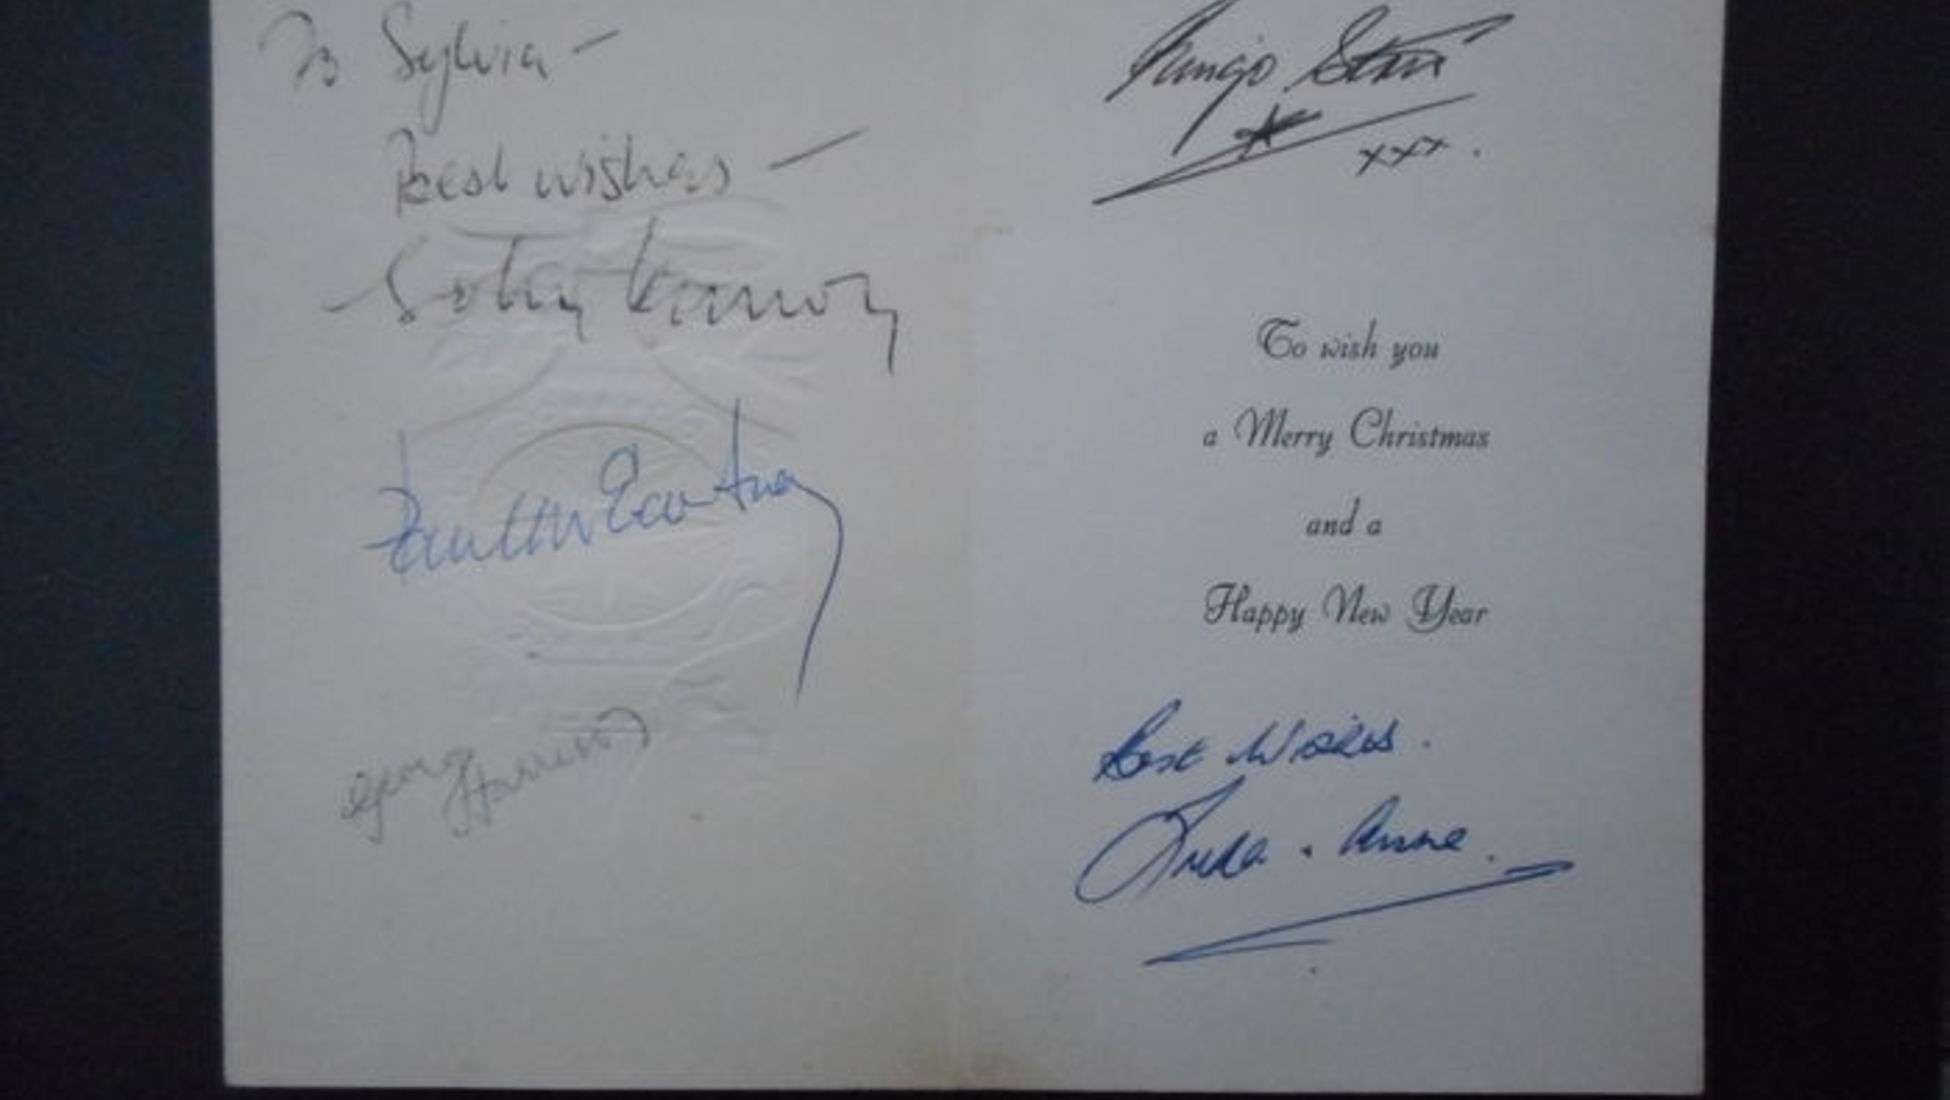 To Sylvia -
Best wishes -
John Lennon
Paul McCartney
George
Harrison
Ringo Starr
xxx.
To wish you
a Merry Christmas
and a
Happy New Year
Best Wishes.
Freda . Anne.